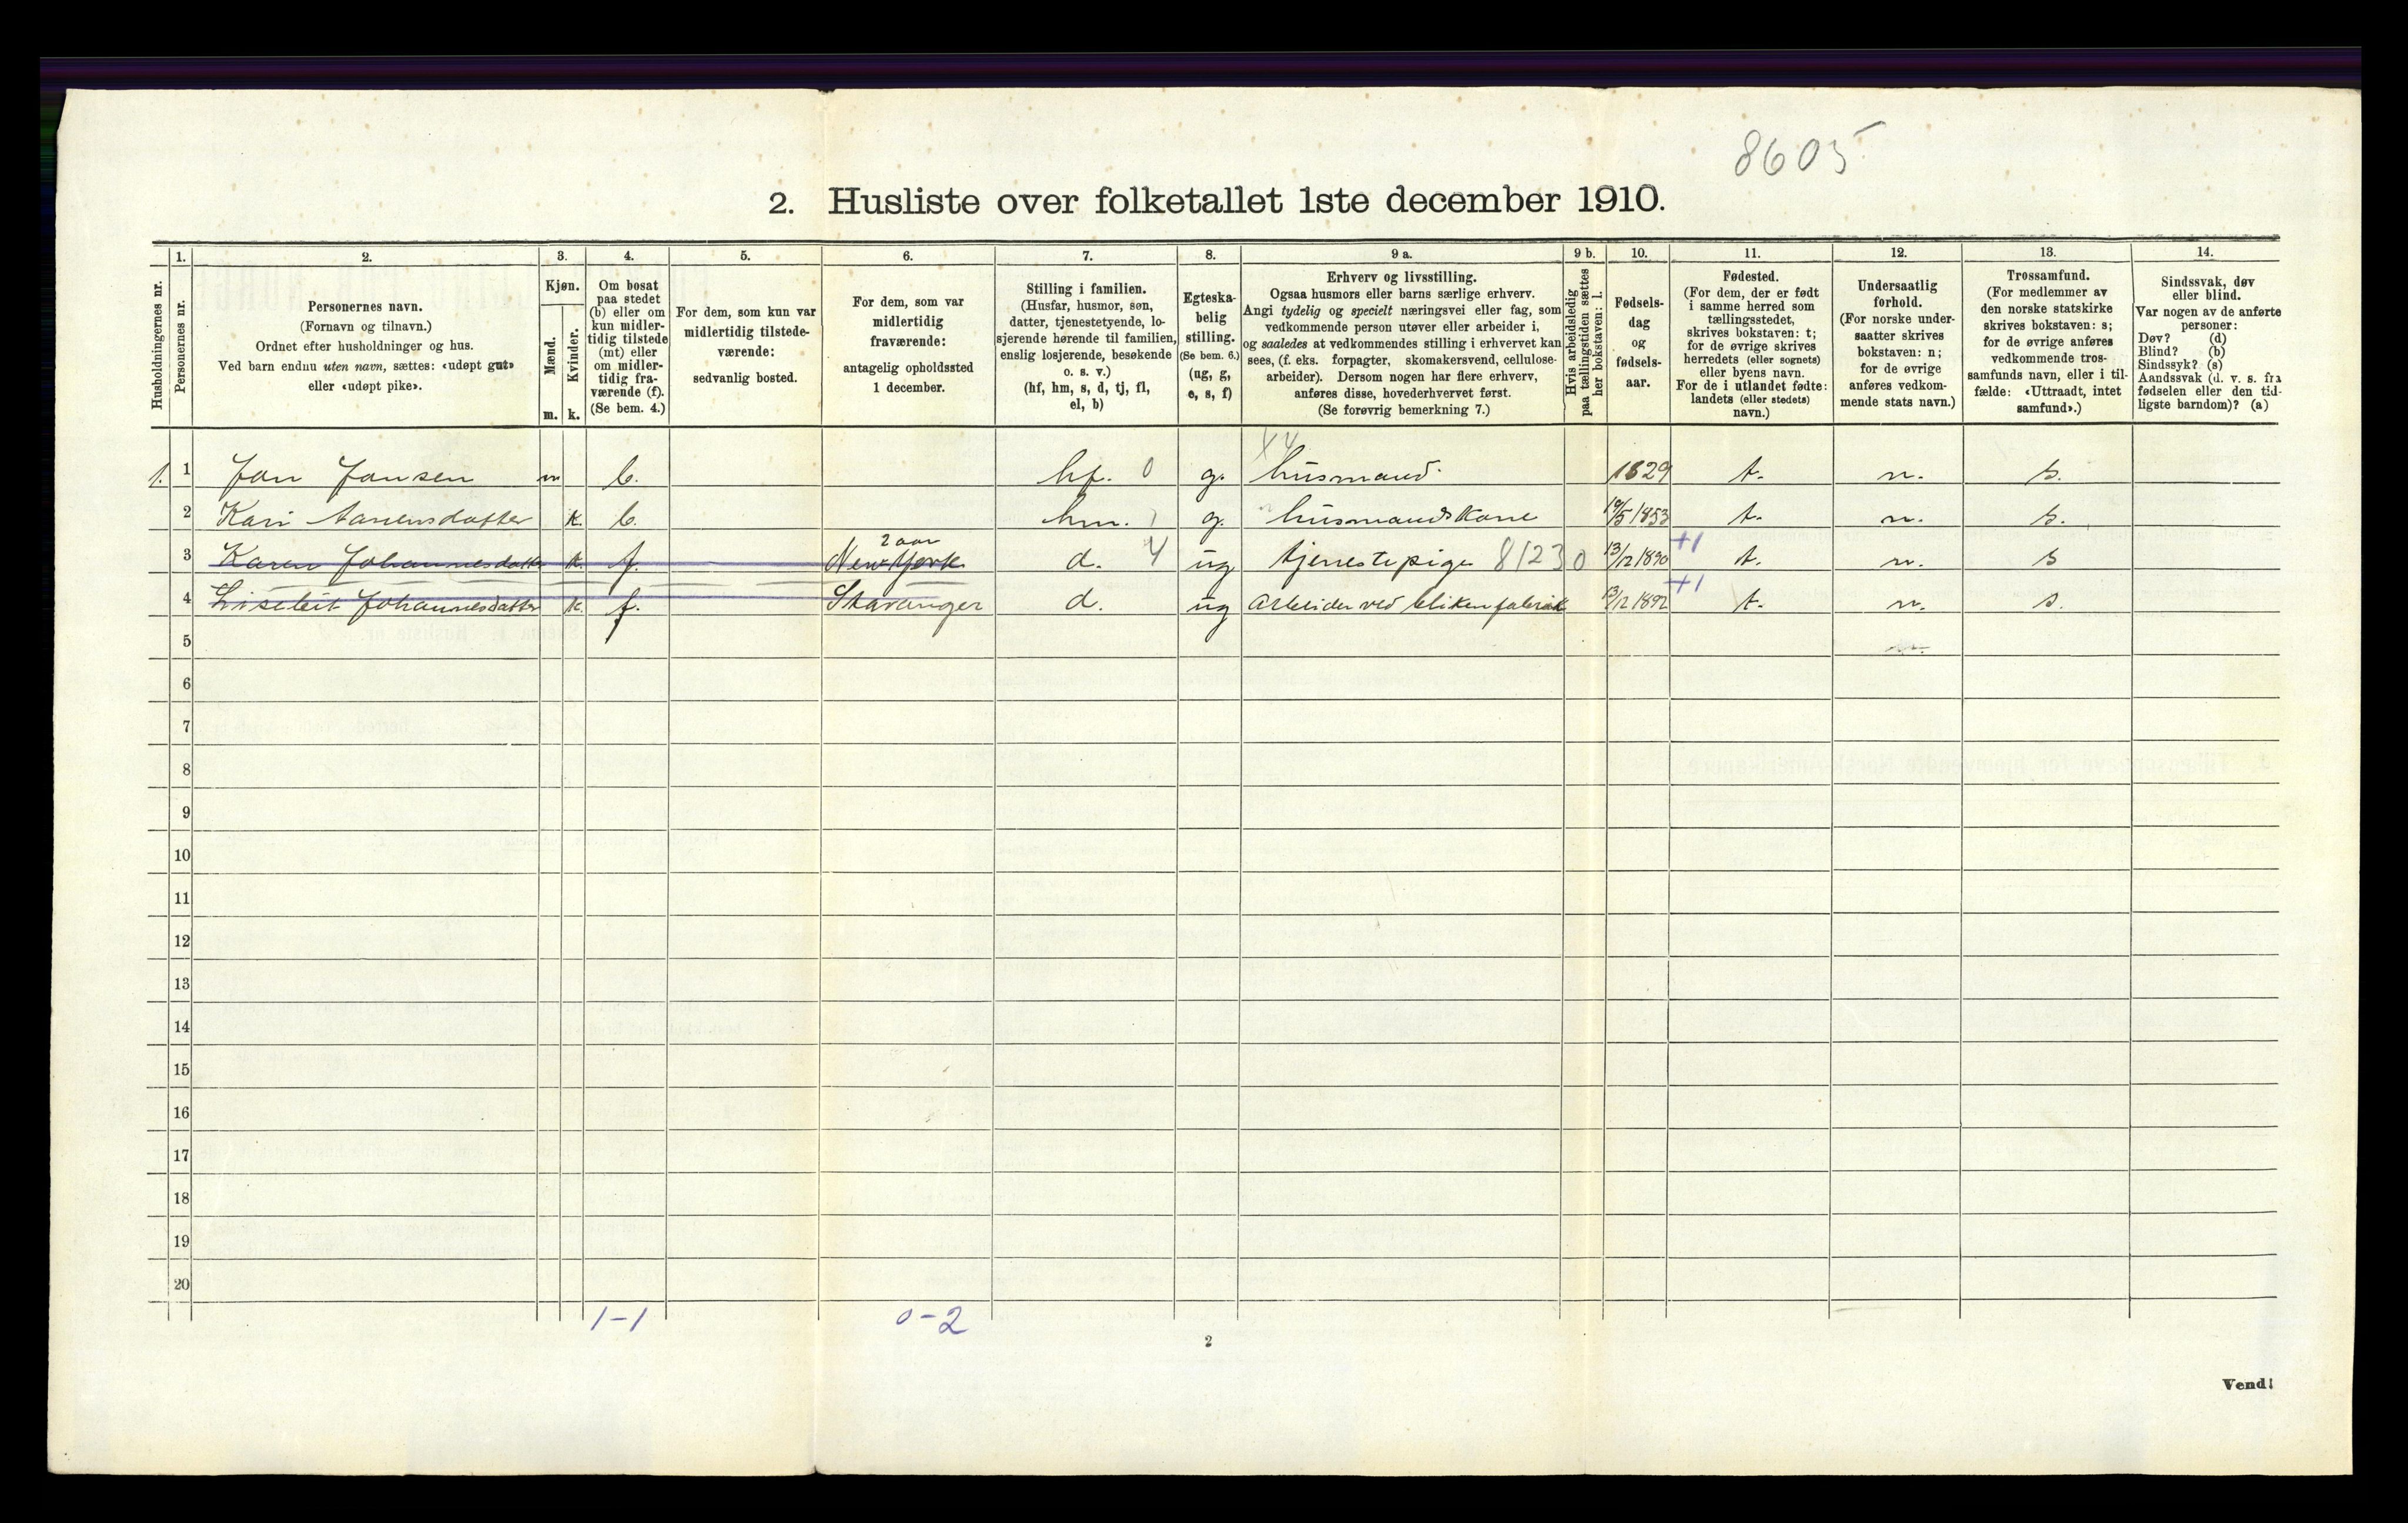 8605
2. Husliste over folketallet 1ste december 1910.
Husholdningernes nr.
1.
Personernes nr.
2.
Personernes navn.
(Fornavn og tilnavn.)
Ordnet efter husholdninger og hus.
Ved barn endnu uten navn, sættes: «udøpt gut»
eller «udøpt pike».
3.
Kjøn.
Mænd.
Kvinder.
m. k.
4.
Om bosat
paa stedet
(b) eller om
kun midler-
tidig tilstede
(mt) eller
om midler-
tidig fra-
værende (f).
(Se bem. 4.)
5.
For dem, som kun var
midlertidig tilstede-
værende:
sedvanlig bosted.
6.
For dem, som var
midlertidig
fraværende:
antagelig opholdssted
1 december.
7.
Stilling i familien.
(Husfar, husmor, søn,
datter, tjenestetyende, lo-
sjerende hørende til familien,
enslig losjerende, besøkende
o. s. v.)
(hf, hm, s, d, tj, fl,
el, b)
8.
Egteska-
belig
stilling.
(Se bem. 6.)
(ug, g,
e, s, f)
9 a.
Erhverv og livsstilling.
Ogsaa husmors eller barns særlige erhverv.
Angi tydelig og specielt næringsvei eller fag, som
vedkommende person utøver eller arbeider i,
og saaledes at vedkommendes stilling i erhvervet kan
sees, (f. eks. forpagter, skomakersvend, cellulose-
arbeider). Dersom nogen har flere erhverv,
anføres disse, hovederhvervet først.
(Se forøvrig bemerkning 7.)
9 b.
Hvis arbeidsledig
paa tællingstiden sættes
her bokstaven: l.
10.
Fødsels-
dag
og
fødsels-
aar.
11.
Fødested.
(For dem, der er født
i samme herred som
tællingsstedet,
skrives bokstaven: t;
for de øvrige skrives
herredets (eller sognets)
eller byens navn.
For de i utlandet fødte:
landets (eller stedets)
navn.)
12.
Undersaatlig
forhold.
(For norske under-
saatter skrives
bokstaven: n;
for de øvrige
anføres vedkom-
mende stats navn.)
13.
Trossamfund.
(For medlemmer av
den norske statskirke
skrives bokstaven: s;
for de øvrige anføres
vedkommende tros-
samfunds navn, eller i til-
fælde: «Uttraadt, intet
samfund».)
14.
Sindssvak, døv
eller blind.
Var nogen av de anførte
personer:
Døv? (d)
Blind? (b)
Sindssyk? (s)
Aandssvak (d. v. s. fra
fødselen eller den tid-
ligste barndom)? (a)
1. 1 Jon Jonsen m b. hf. 0 g. husmand. 1829 t. n. s.
2 Kari k. b. hm. g. husmandskone 1853 t. n. s.
2 aar
3 Karen Johannesdatter k. f. New York d. 4 ug tjenestepige 8123 0 13/12 1890 +1 t. n. s
4 Johannesdatter k. f. Stavanger d. ug Arbeider ved blikenfabrik 13/12 1892 +1 t. n. s.
5
6
7
8
9
10
11
12
13
14
15
16
17
18
19
20
1-1 0-2
2
Vend!